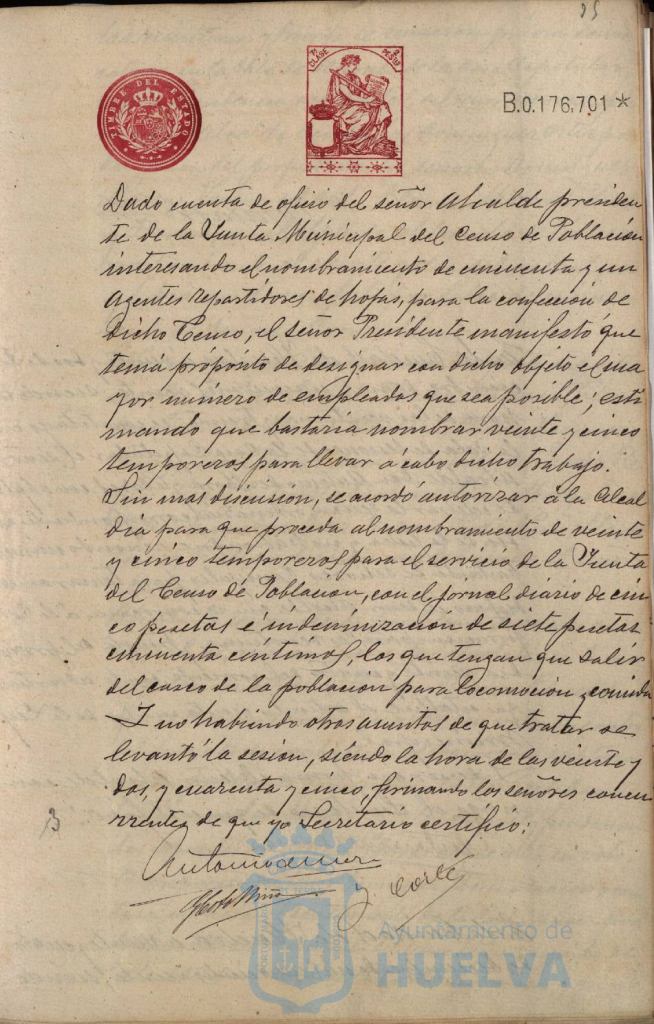 25
TIMBRE DEL ESTADO
CLASE
B.0.176.701 *
Dado cuenta de oficio del señor Alcalde presiden
te de la Junta Municipal del Censo de Población
interesando el nombramiento de cincuenta y un
Agentes repartidores de hojas, para la confección de
dicho Censo, el señor Presidente manifestó que
tenia propósito de designar con dicho objeto el ma
yor número de empleados que sea posible; esti
mando que bastaria nombrar veinte y cinco
temporeros para llevar á cabo dicho trabajo.
Sin más discusión, se acordó autorizar á la Alcal
dia para que proceda al nombramiento de veinte
y cinco temporeros para el servicio de la Junta
del Censo de Población, con el jornal diario de cin
co pesetas é indemnización de siete pesetas
cincuenta céntimos, los que tengan que salir
del casco de la población para locomoción y comida
Y no habiendo otros asuntos de que tratar se
levantó la sesión, siendo la hora de las veinte y
dos, y cuarenta y cinco, firmando los señores concu
rrentes de que yo Secretario certifico:
3
Antonio
y
Ayuntamiento de
HUELVA